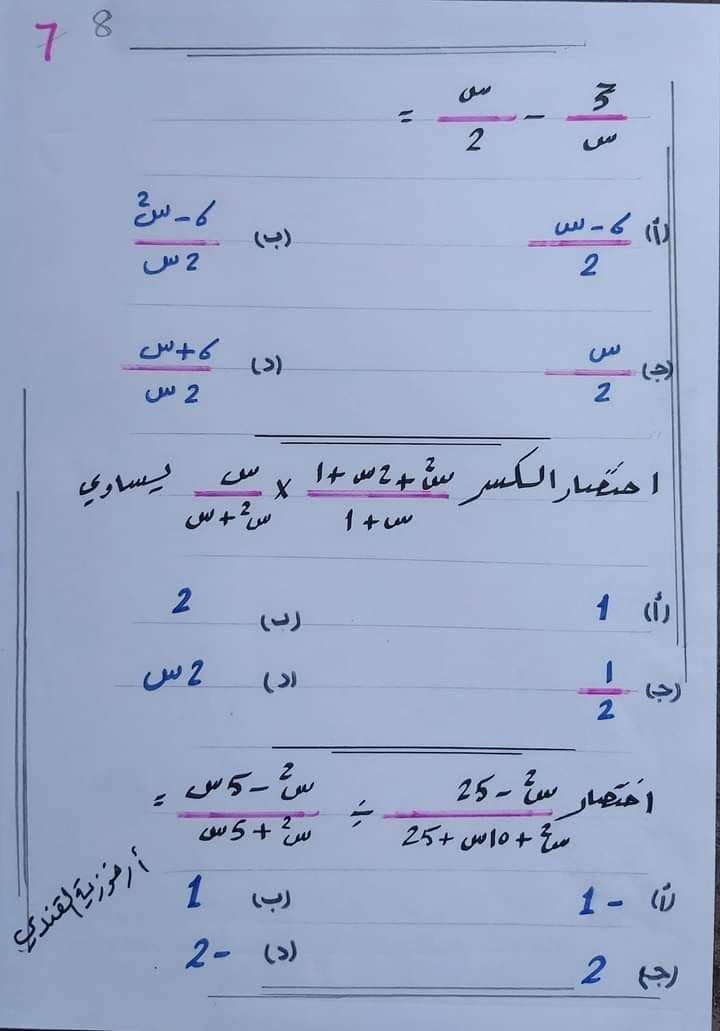 7 8
3/س - س/2 =
(أ) (6-س)/2 (ب) (6-س²)/2س
(ج) س/2 (د) (6+س)/2س
اختصار الكسر (س²+2س+1)/(س+1) × س/(س²+س) يساوي
(أ) 1 (ب) 2
(ج) 1/2 (د) 2س
اختصار (س²-25)/(س²+10س+25) ÷ (س²-5س)/(س²+5س) =
(أ) -1 (ب) 1
(ج) 2 (د) -2
أ. فوزية القندي